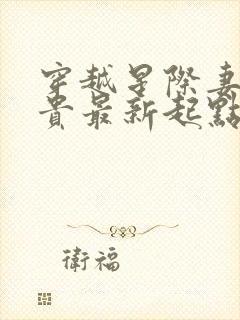 穿越星際妻
貴最新起點
衛福